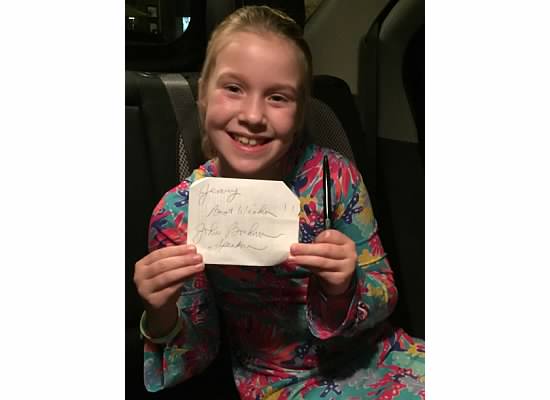 Jenny
Best Wishes !!
John Boehner
Speaker